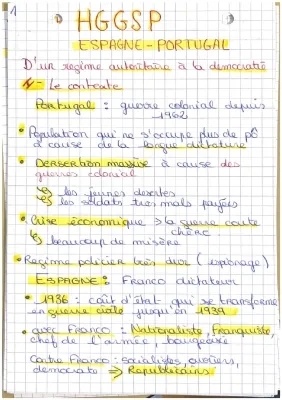 1
HGGSP
ESPAGNE - PORTUGAL
D'un regime autoritaire à la democratie
- Le contexte
Portugal : guerre colonial depuis
1962
• Population qui ne s'occupe plus de pô
à cause de la longue dictature
• Dersertion massive à cause des
guerres colonial
↳ les jeunes desertes
↳ les soldats tres mal payées
• Crise économique > la guerre coute
chère
↳ beaucoup de misère
• Regime policier très dur ( espionage)
ESPAGNE : Franco dictateur
• 1936 : coût d'état qui se transforme
en guerre civile jusqu'en 1939
• avec Franco : Nationaliste, franquiste,
chef de l'armée, bourgeoise
Contre Franco : socialistes, ouvriers,
democrate => Republicains